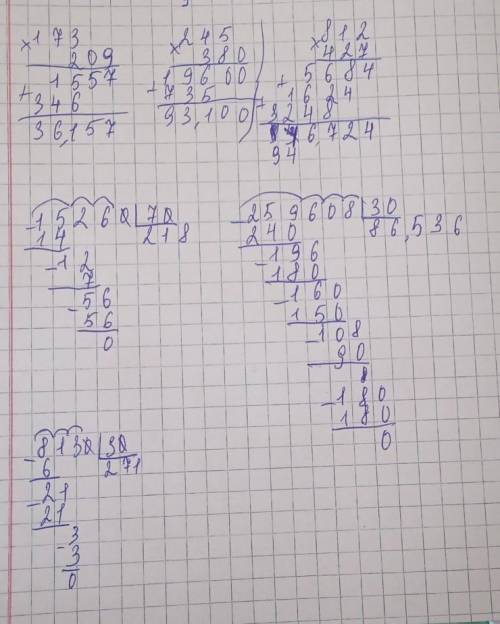 173
× 209
1557
+
346
36,157
245
× 380
19600
+ 735
93,100
812
× 427
5684
+ 1624
+ 3248
6,724
94
-15260 | 70
14 218
-12
7
-56
56
0
-259608 | 30
240 86,536
-196
180
-160
150
-108
90
8
-180
180
0
-8130 | 30
6 271
-21
21
-3
3
0